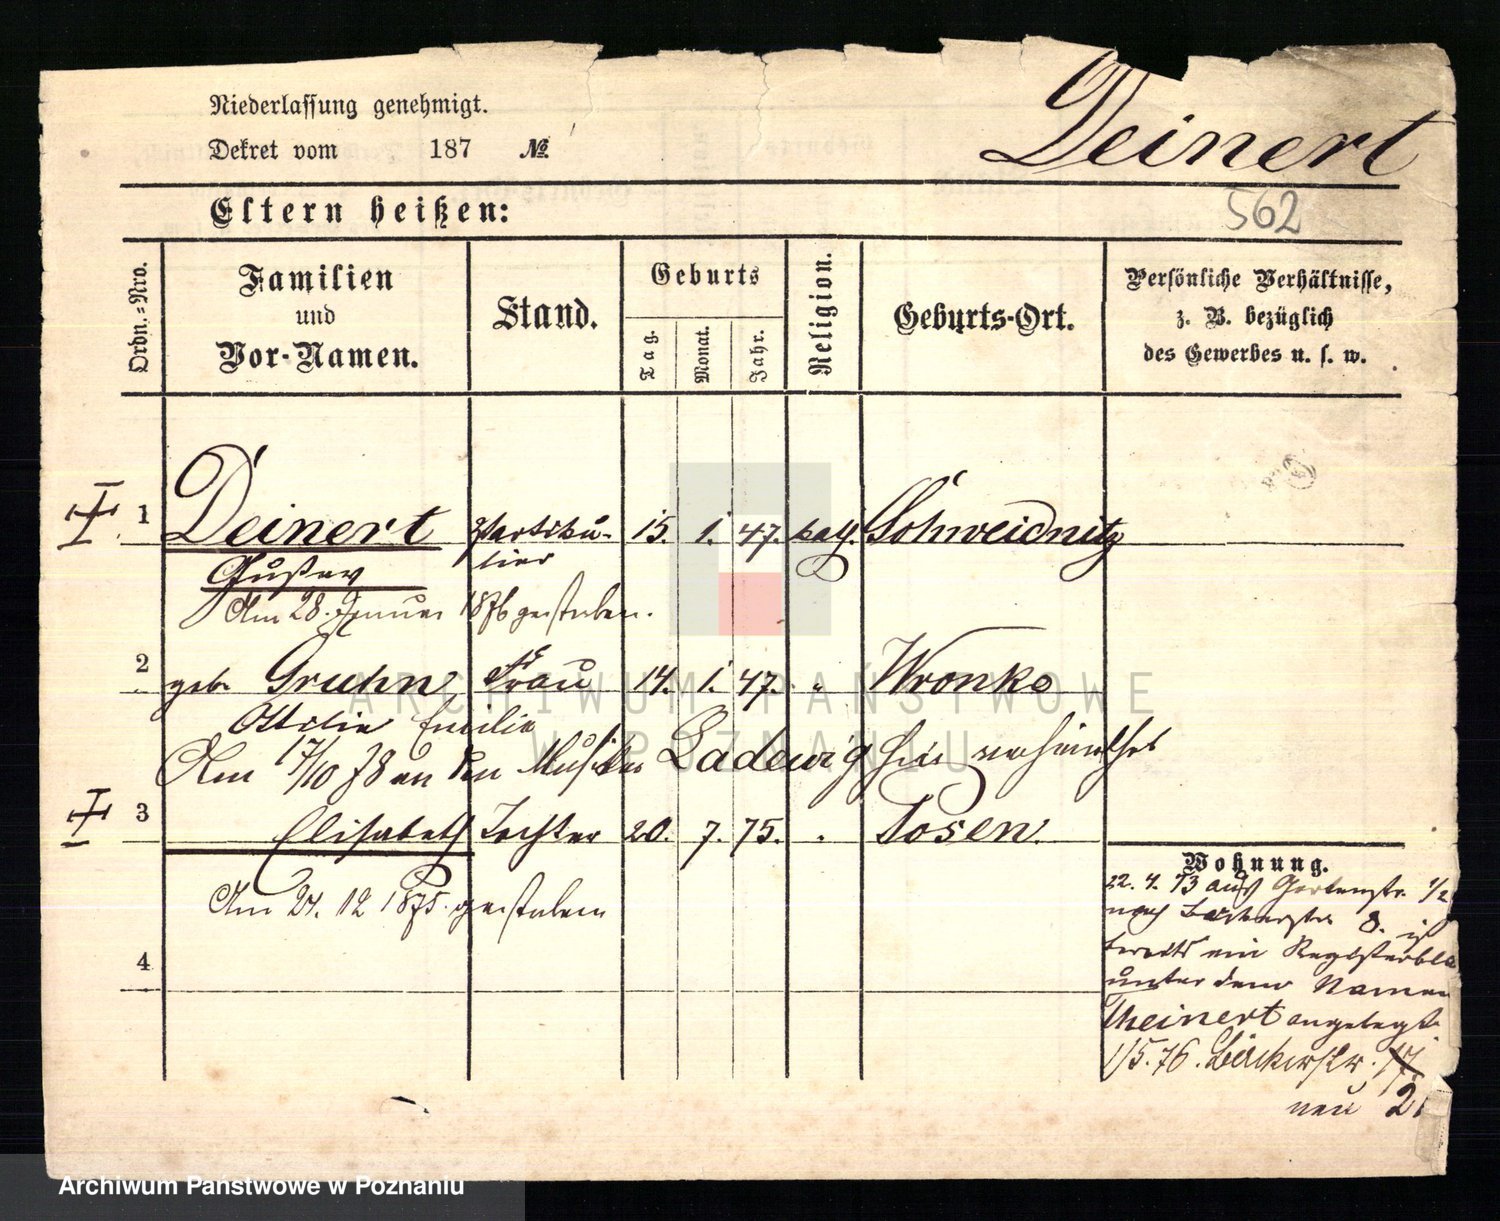 Niederlassung genehmigt.
Dekret vom 187 №
Deinert
Eltern heißen:
562
Ordn.=Nro.
Familien
und
Vor-Namen.
Stand.
Geburts
Tag.
Monat.
Jahr.
Religion.
Geburts-Ort.
Persönliche Verhältnisse,
z. B. bezüglich
des Gewerbes u. s. w.
1 Deinert Partiku- 15. 1. 47. kath. Schweidnitz
Gustav lier
Am 28. Januar 1876 gestorben.
2 geb. Gruhn, Frau 14. 1. 47. " Wronke
Ottilie Emilie
Am 17/10 78 an den Musiker Ladewig hier verheirathet
3 Elisabeth Tochter 20. 7. 75. " Posen.
Am 24. 12 1875. gestorben
4
Wohnung.
22. 4. 73 aus Gartenstr. 1/2
nach Bäckerstr 8. ist
bereits ein Registerbla
unter dem Namen
Theinert angelegt
1/5. 76. Bäckerstr. 17.
neu 21
ARCHIWUM PAŃSTWOWE
W POZNANIU
Archiwum Państwowe w Poznaniu